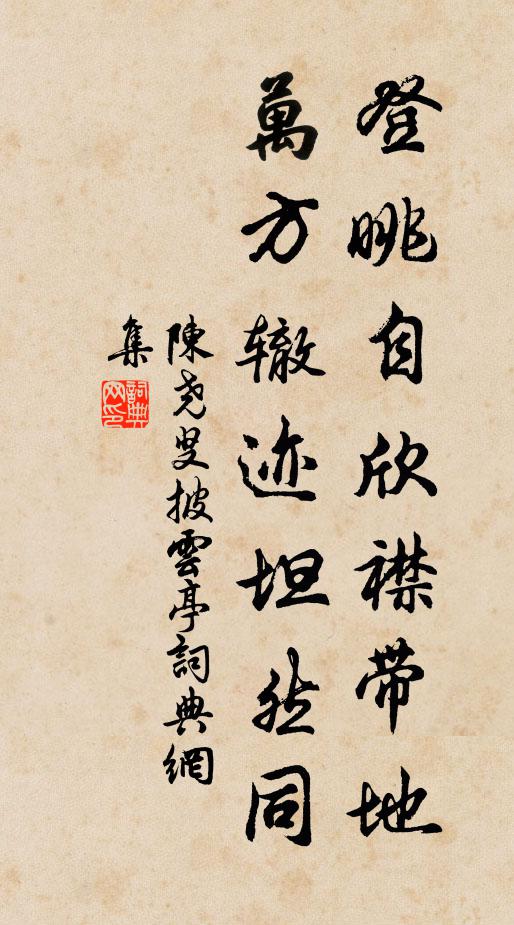 登眺自欣襟带地
萬方辙迹坦然同
陳尧叟披雲亭詞典網
集
詞典
网印